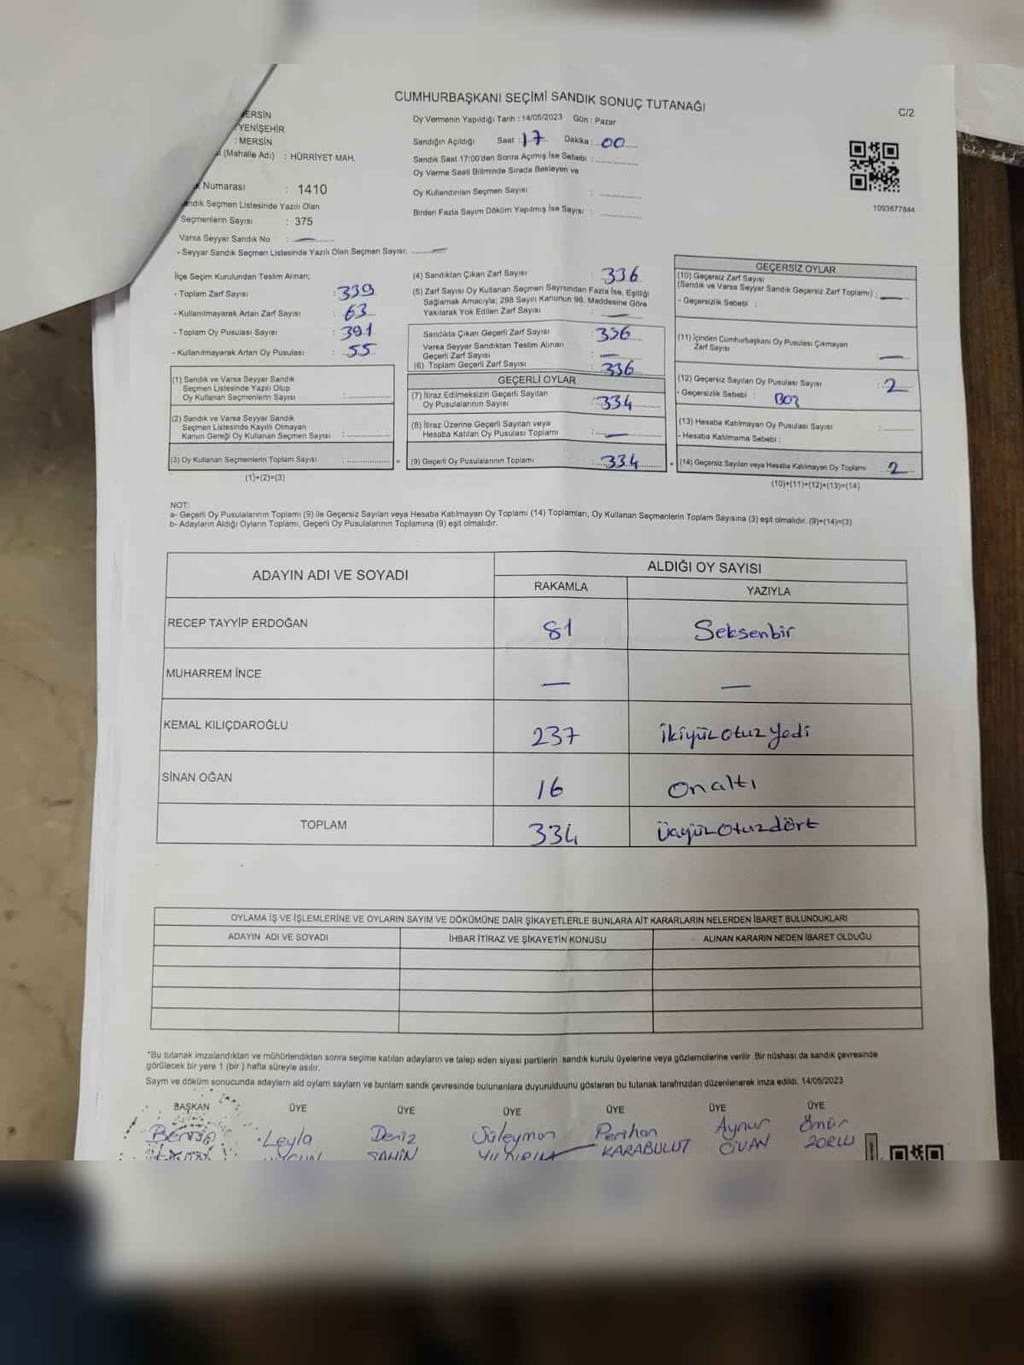 CUMHURBAŞKANI SEÇİMİ SANDIK SONUÇ TUTANAĞI
C/2
MERSİN
YENİŞEHİR
: MERSİN
(Mahalle Adı) : HÜRRİYET MAH.
Numarası : 1410
Sandık Seçmen Listesinde Yazılı Olan
Seçmenlerin Sayısı : 375
Varsa Seyyar Sandık No :
- Seyyar Sandık Seçmen Listesinde Yazılı Olan Seçmen Sayısı:
Oy Vermenin Yapıldığı Tarih : 14/05/2023 Gün : Pazar
Sandığın Açıldığı Saat : 17 Dakika : 00
Sandık Saat 17:00'den Sonra Açılmış İse Sebebi :
Oy Verme Saati Bitiminde Sırada Bekleyen ve
Oy Kullandırılan Seçmen Sayısı :
Birden Fazla Sayım Döküm Yapılmış İse Sayısı :
1093677844
İlçe Seçim Kurulundan Teslim Alınan;
- Toplam Zarf Sayısı : 339
- Kullanılmayarak Artan Zarf Sayısı : 63
- Toplam Oy Pusulası Sayısı : 391
- Kullanılmayarak Artan Oy Pusulası : 55
(1) Sandık ve Varsa Seyyar Sandık
Seçmen Listesinde Yazılı Olup
Oy Kullanan Seçmenlerin Sayısı :
(2) Sandık ve Varsa Seyyar Sandık
Seçmen Listesinde Kayıtlı Olmayan
Kanun Gereği Oy Kullanan Seçmen Sayısı :
(3) Oy Kullanan Seçmenlerin Toplam Sayısı : =
(1)+(2)=(3)
(4) Sandıktan Çıkan Zarf Sayısı : 336
(5) Zarf Sayısı Oy Kullanan Seçmen Sayısından Fazla İse, Eşitliği
Sağlamak Amacıyla; 298 Sayılı Kanunun 98. Maddesine Göre
Yakılarak Yok Edilen Zarf Sayısı :
Sandıkta Çıkan Geçerli Zarf Sayısı : 336
Varsa Seyyar Sandıktan Teslim Alınan
Geçerli Zarf Sayısı :
(6) Toplam Geçerli Zarf Sayısı : 336
GEÇERLİ OYLAR
(7) İtiraz Edilmeksizin Geçerli Sayılan
Oy Pusulalarının Sayısı : 334
(8) İtiraz Üzerine Geçerli Sayılan veya
Hesaba Katılan Oy Pusulası Toplamı :
(9) Geçerli Oy Pusulalarının Toplamı : 334 +
GEÇERSİZ OYLAR
(10) Geçersiz Zarf Sayısı
(Sandık ve Varsa Seyyar Sandık Geçersiz Zarf Toplamı) :
- Geçersizlik Sebebi :
(11) İçinden Cumhurbaşkanı Oy Pusulası Çıkmayan
Zarf Sayısı :
(12) Geçersiz Sayılan Oy Pusulası Sayısı : 2
- Geçersizlik Sebebi : Boş
(13) Hesaba Katılmayan Oy Pusulası Sayısı :
- Hesaba Katılmama Sebebi :
(14) Geçersiz Sayılan veya Hesaba Katılmayan Oy Toplamı : 2
(10)+(11)+(12)+(13)=(14)
NOT:
a- Geçerli Oy Pusulalarının Toplamı (9) ile Geçersiz Sayılan veya Hesaba Katılmayan Oy Toplamı (14) Toplamları, Oy Kullanan Seçmenlerin Toplam Sayısına (3) eşit olmalıdır. (9)+(14)=(3)
b- Adayların Aldığı Oyların Toplamı, Geçerli Oy Pusulalarının Toplamına (9) eşit olmalıdır.
ADAYIN ADI VE SOYADI
ALDIĞI OY SAYISI
RAKAMLA YAZIYLA
RECEP TAYYİP ERDOĞAN 81 Seksenbir
MUHARREM İNCE — —
KEMAL KILIÇDAROĞLU 237 ikiyüzotuzyedi
SİNAN OĞAN 16 onaltı
TOPLAM 334 üçyüzotuzdört
OYLAMA İŞ VE İŞLEMLERİNE VE OYLARIN SAYIM VE DÖKÜMÜNE DAİR ŞİKAYETLERLE BUNLARA AİT KARARLARIN NELERDEN İBARET BULUNDUKLARI
ADAYIN ADI VE SOYADI İHBAR İTİRAZ VE ŞİKAYETİN KONUSU ALINAN KARARIN NEDEN İBARET OLDUĞU
"Bu tutanak imzalandıktan ve mühürlendikten sonra seçime katılan adayların ve talep eden siyasi partilerin sandık kurulu üyelerine veya gözlemcilerine verilir. Bir nüshası da sandık çevresinde
görülecek bir yere 1 (bir ) hafta süreyle asılır.
Sayım ve döküm sonucunda adayların aldı oyların sayları ve bunların sandık çevresinde bulunanlara duyurulduunu gösteren bu tutanak tarafımızdan düzenlenerek imza edildi. 14/05/2023
BAŞKAN ÜYE ÜYE ÜYE ÜYE ÜYE ÜYE
Leyla Deniz Süleyman Perihan Aynur Ömür
ŞAHİN YILDIRIM KARABULUT CİVAN ZORLU